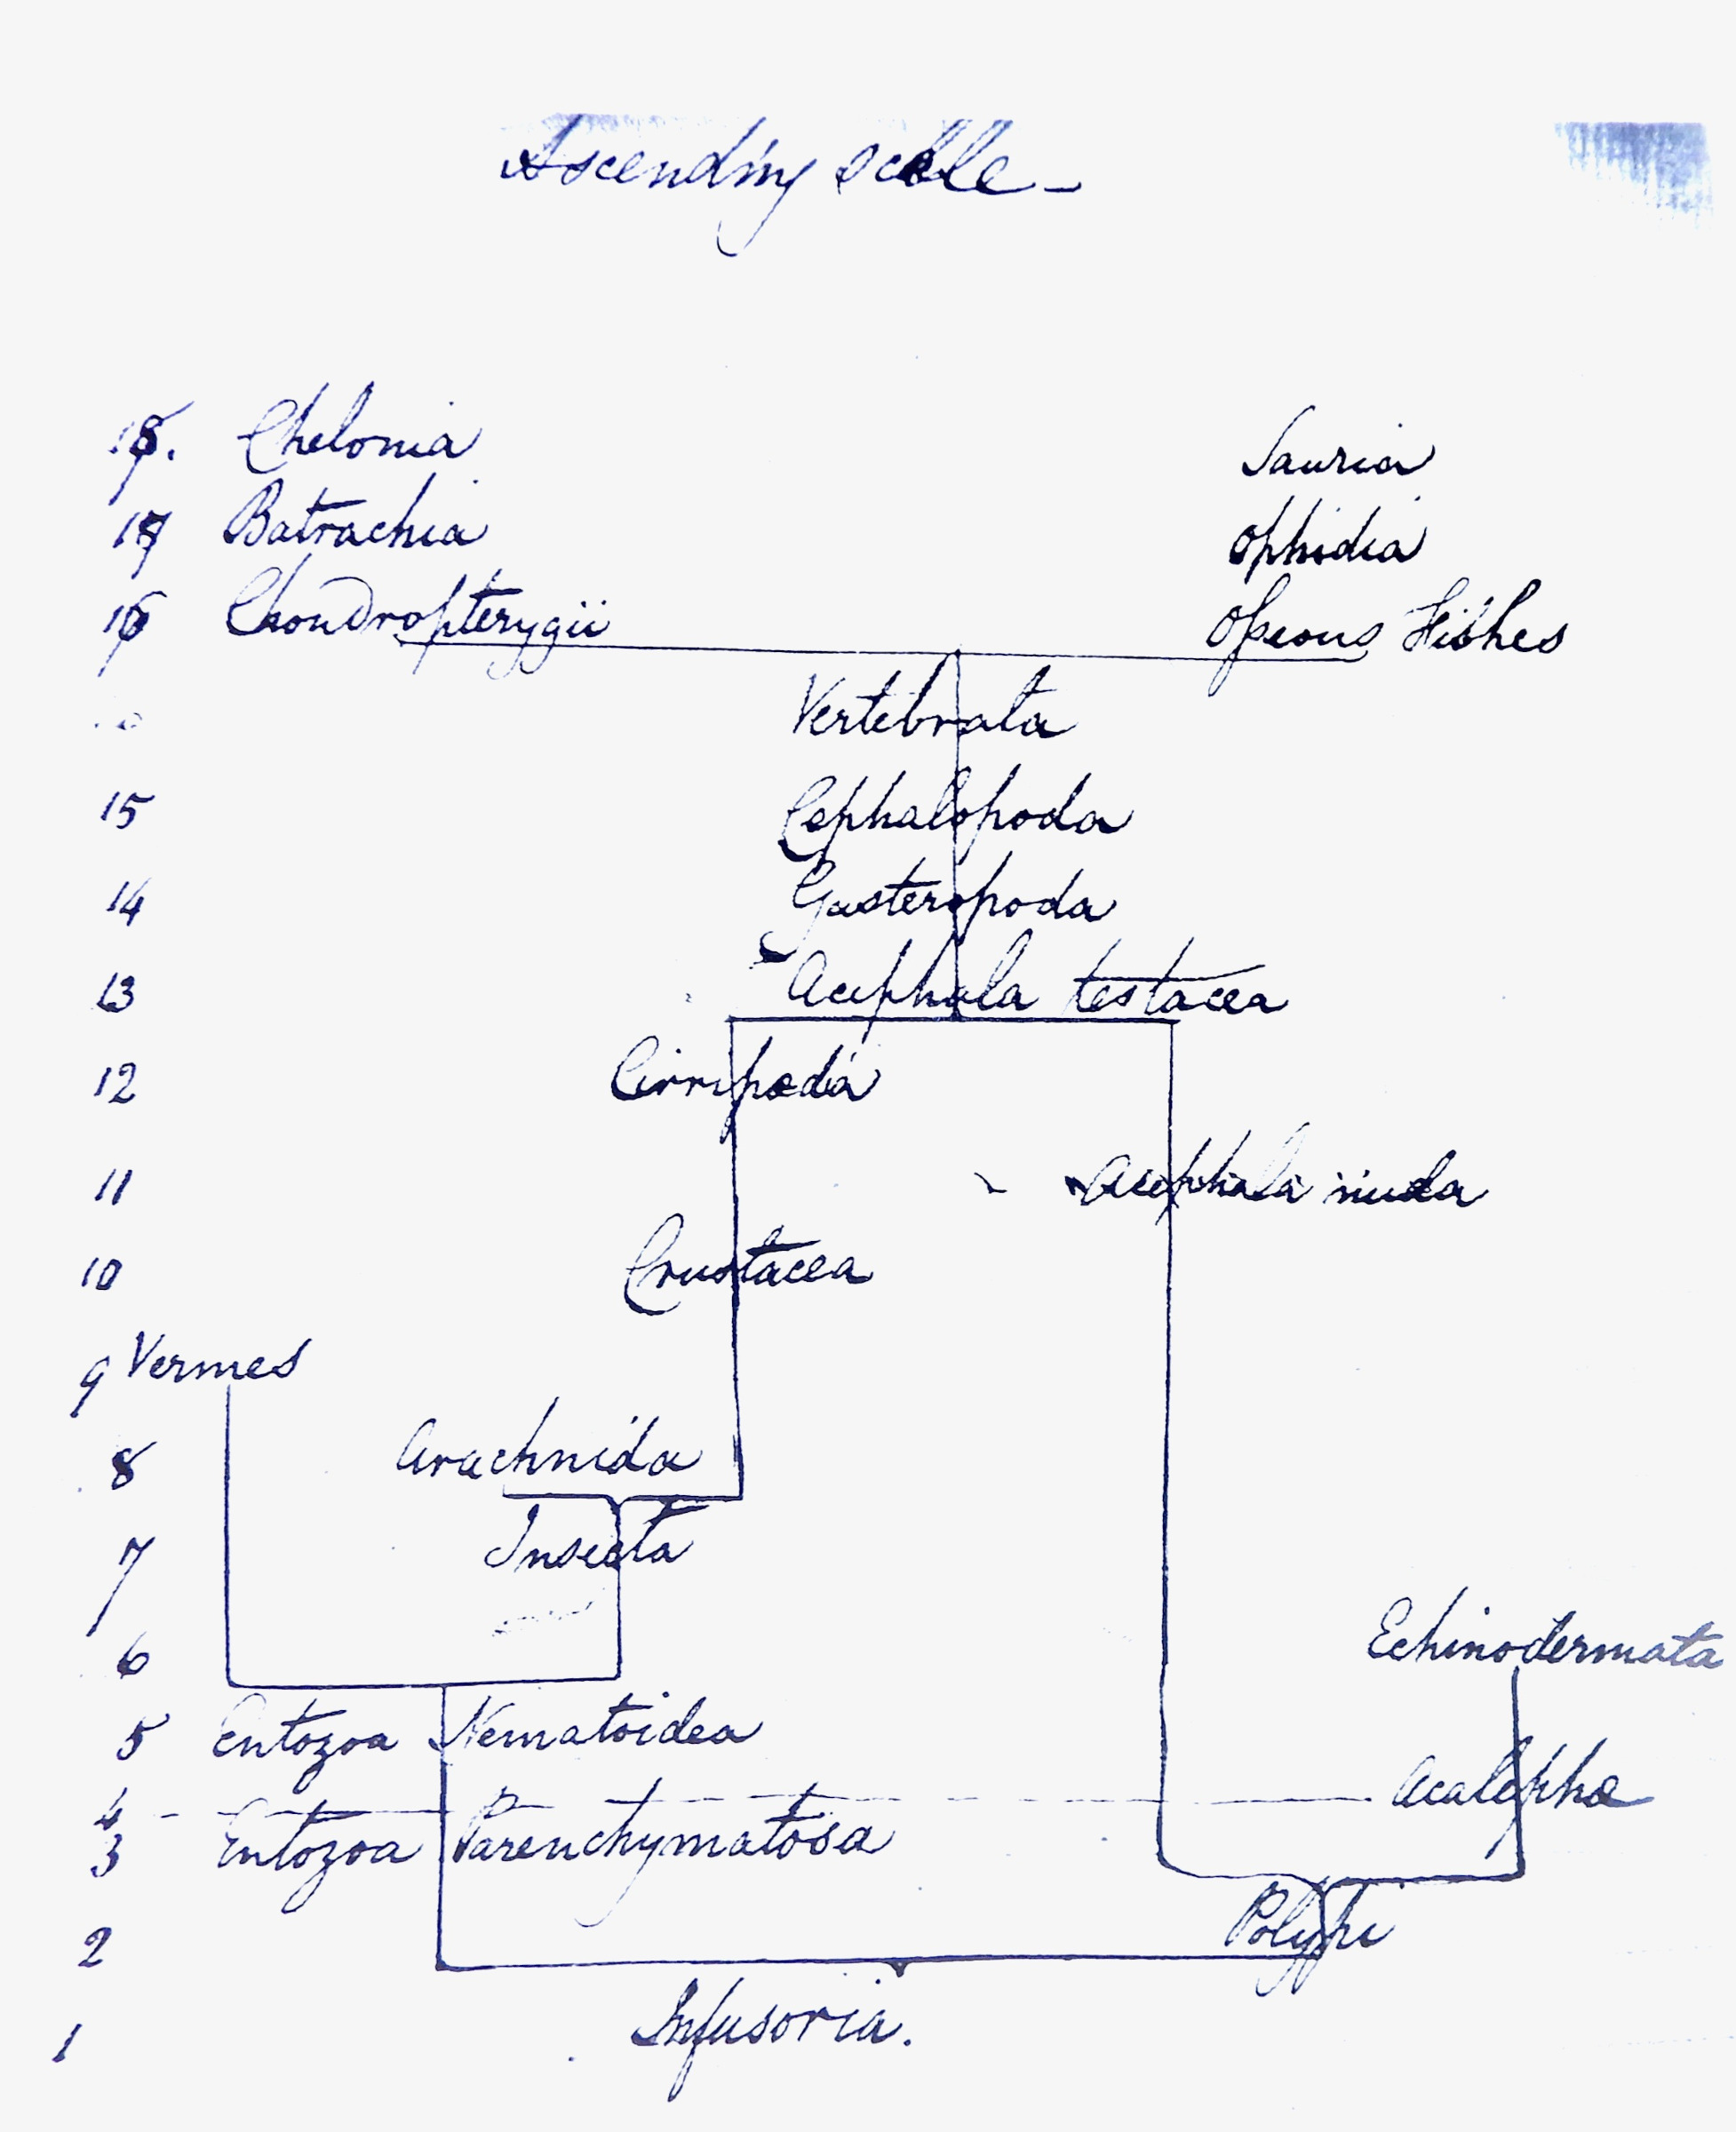 Ascending scale -
18. Chelonia Sauria
17 Batrachia Ophidia
16 Chondropterygii Osseous Fishes
Vertebrata
15 Cephalopoda
14 Gasteropoda
13 Acephala testacea
12 Cirripoda
11 Acephala nuda
10 Crustacea
9 Vermes
8 Arachnida
7 Insecta
6 Echinodermata
5 Entozoa Nematoidea
4 Acalepha
3 Entozoa Parenchymatosa
2 Polypi
1 Infusoria.